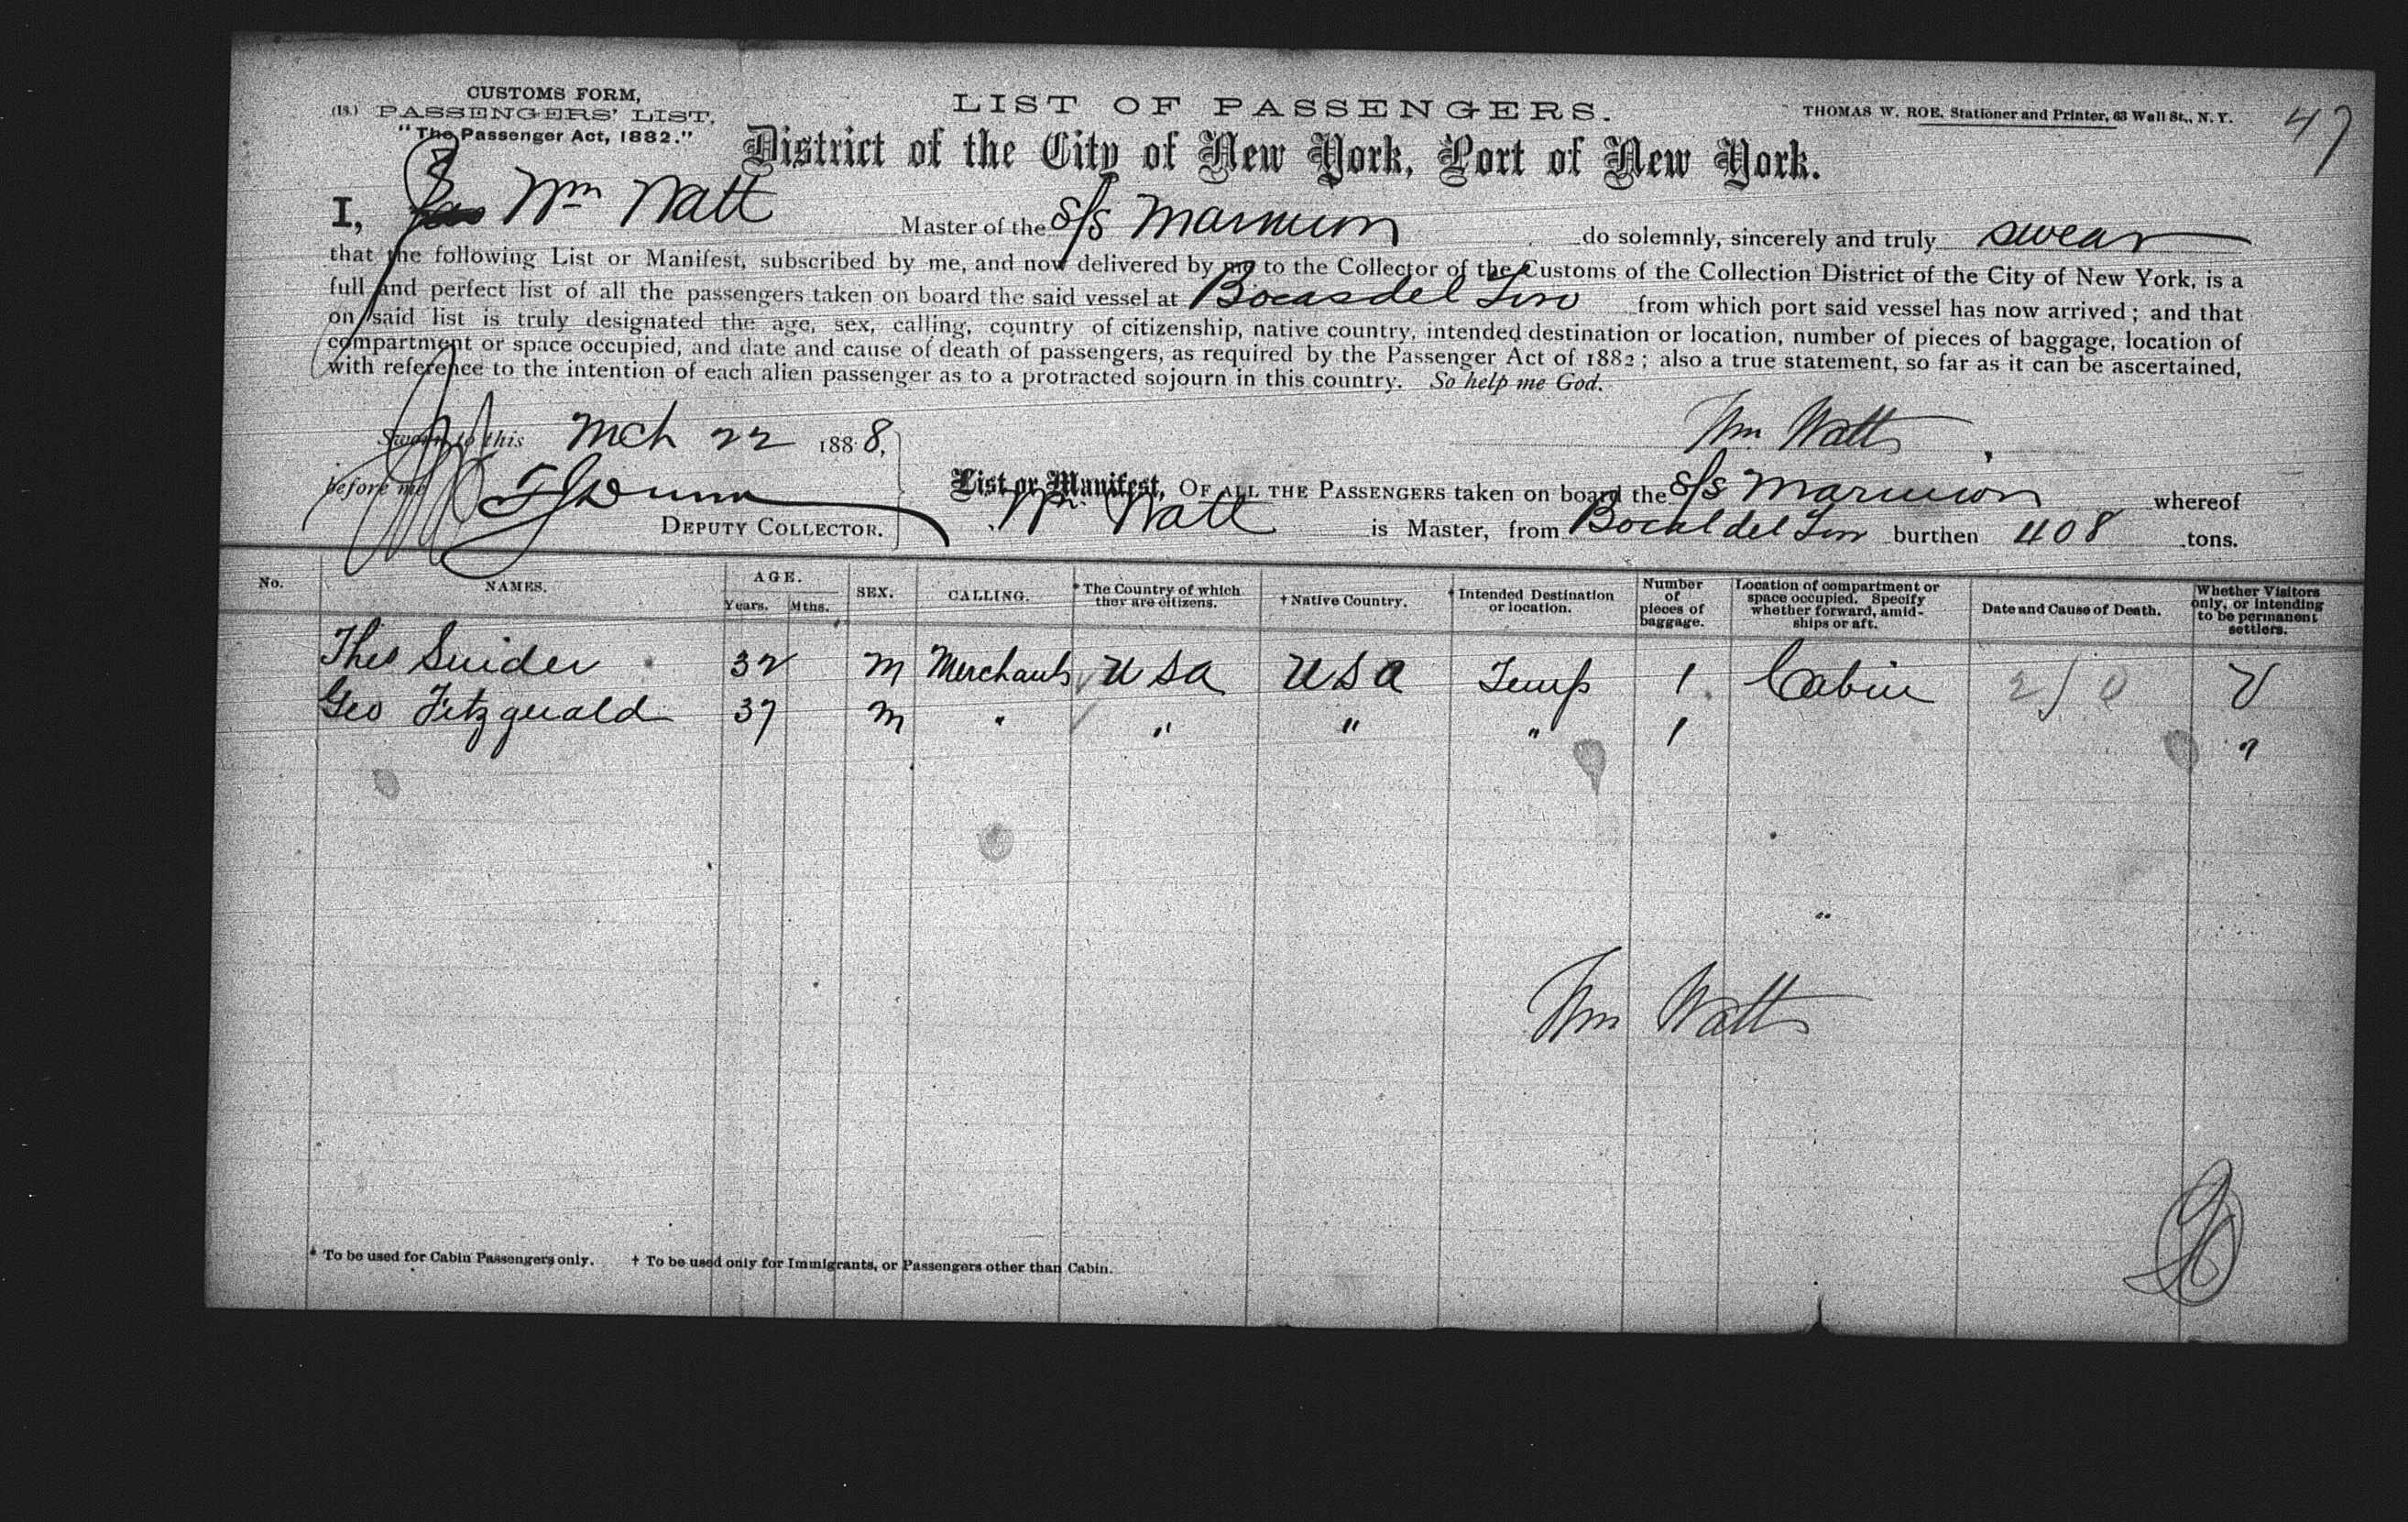 CUSTOMS FORM,
(18.) PASSENGERS' LIST,
"The Passenger Act, 1882."
LIST OF PASSENGERS.
THOMAS W. ROE, Stationer and Printer, 63 Wall St., N. Y.
47
District of the City of New York, Port of New York.
I, Wm Watt Master of the S/S Marmion do solemnly, sincerely and truly swear
that the following List or Manifest, subscribed by me, and now delivered by me to the Collector of the Customs of the Collection District of the City of New York, is a
full and perfect list of all the passengers taken on board the said vessel at Bocas del Toro from which port said vessel has now arrived; and that
on said list is truly designated the age, sex, calling, country of citizenship, native country, intended destination or location, number of pieces of baggage, location of
compartment or space occupied, and date and cause of death of passengers, as required by the Passenger Act of 1882; also a true statement, so far as it can be ascertained,
with reference to the intention of each alien passenger as to a protracted sojourn in this country. So help me God.
Wm Watt
Sworn to this Mch 22 1888,
before me Dunn
DEPUTY COLLECTOR.
List or Manifest, OF ALL THE PASSENGERS taken on board the S/S Marmion whereof
Wm Watt is Master, from Bocas del Toro burthen 408 tons.
No. NAMES. AGE. Years. Mths. SEX. CALLING. * The Country of which they are citizens. † Native Country. † Intended Destination or location. Number of pieces of baggage. Location of compartment or space occupied. Specify whether forward, amidships or aft. Date and Cause of Death. Whether Visitors only, or intending to be permanent settlers.
Theo Snider 32 M Merchants USA USA Temp 1 Cabin V
Geo Fitzgerald 37 M " " " " 1 "
Wm Watt
* To be used for Cabin Passengers only. † To be used only for Immigrants, or Passengers other than Cabin.